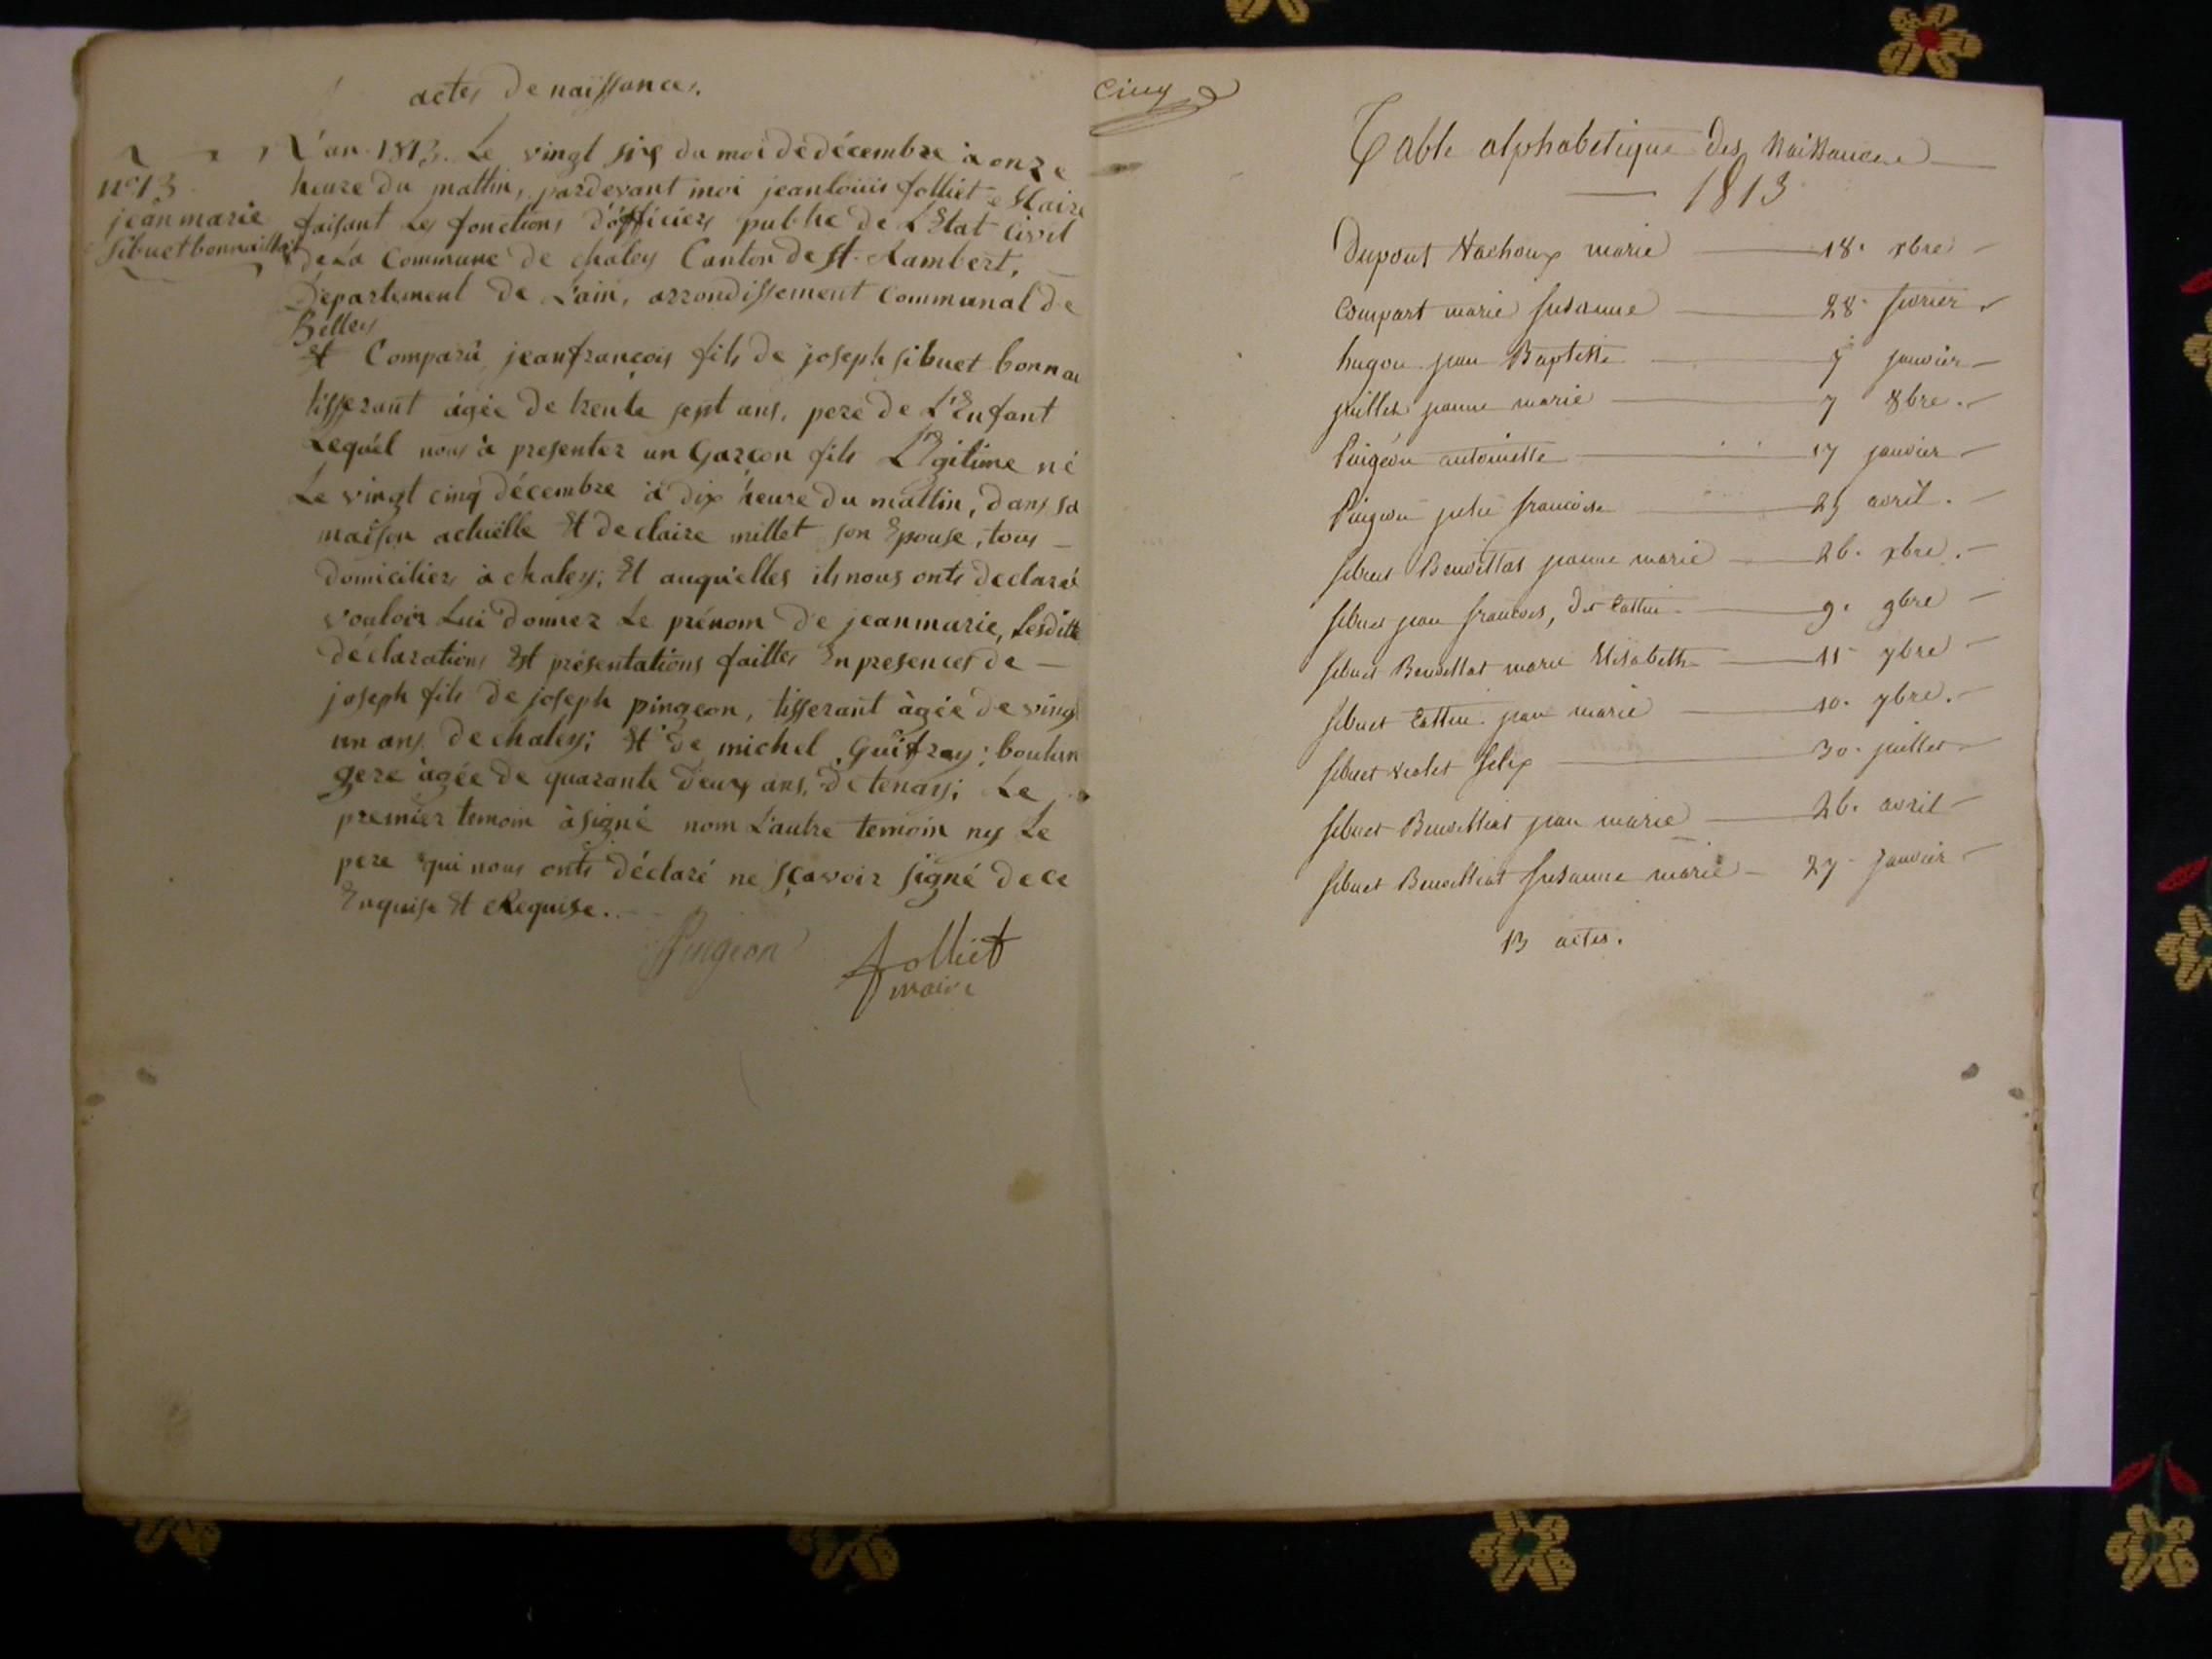 actes de naissances.
n° 13
jean marie
Sibuet bonnaillat
L'an 1813. Le vingt six du moi de décembre à onze
heure du mattin, pardevant moi jean louis folliet Maire
faisant Les fonctions d'officiers publhe de L'Etat Civil
de La Commune de chaley Canton de St. Rambert,
Departement de L'ain, arrondissement Communal de
Belley
Et Comparû jean françois fils de joseph sibuet bonnai
tisserant âgée de trente sept ans, pere de L'Enfant
Lequél nous à presenter un Garcon fils Légitime né
Le vingt cinq décembre à dix heure du mattin, dans sa
maison actuëlle Et de claire millet son Epouse, tous
domiciliez à chaley; Et auquelles ils nous onts declaré
vouloir Lui donnez Le prénom de jean marie, Lesditte
déclarations Et présentations faittes En presences de
joseph fils de joseph pingeon, tisserant àgée de vingt
un ans de chaley; Et de michel Guifray; boulan
gere àgée de quarante deux ans, de tenay; Le
premier temoin à signé nom L'autre temoin ny Le
pere qui nous onts déclaré ne sçavoir signé de ce
Enquise Et Requise.
Pingeon folliet
maire
Cinq
Table alphabetique des Naissances
1813
Dupont Nachoux marie 18. xbre
Compart marie susanne 28. fevrier
hugon jean Baptiste 7 janvier
juillet jeanne marie 7 8bre.
Pingeon antoinette 17 janvier
Pingeon julie francoise 25 avril.
sibuet Benoittat jeanne marie 26. xbre.
sibuet jean francois, dit Cattin 9. 9bre
sibuet Benoittat marie Elisabeth 11 7bre
sibuet Cattin jean marie 10. 7bre.
sibuet violet felix 30. juillet
sibuet Benoittiat jean marie 26. avril
sibuet Benoittiat susanne marie 27. Janvier
13 actes.